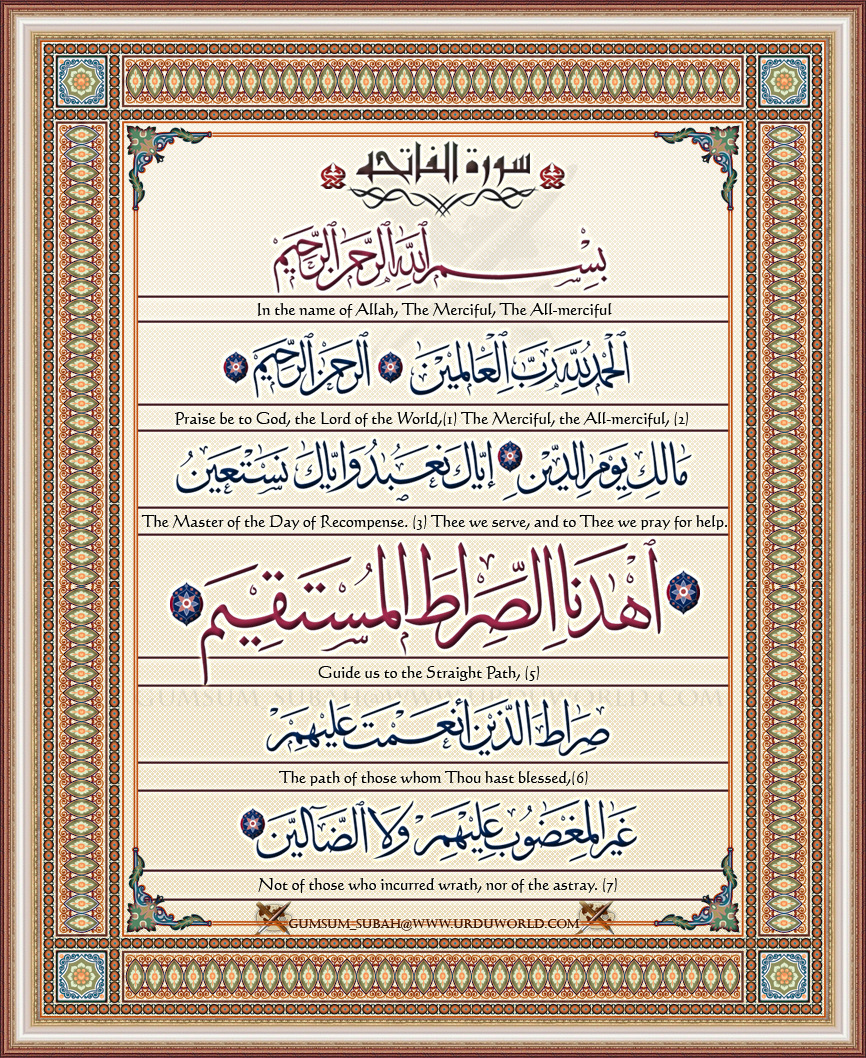 سورة الفاتحه
بسم الله الرحمن الرحيم
In the name of Allah, The Merciful, The All-merciful
الحمد لله رب العالمين الرحمن الرحيم
Praise be to God, the Lord of the World,(1) The Merciful, the All-merciful, (2)
مالك يوم الدين إياك نعبد وإياك نستعين
The Master of the Day of Recompense. (3) Thee we serve, and to Thee we pray for help.
اهدنا الصراط المستقيم
Guide us to the Straight Path, (5)
GUMSUM_SUBAH@WWW.URDUWORLD.COM
صراط الذين أنعمت عليهم
The path of those whom Thou hast blessed,(6)
غير المغضوب عليهم ولا الضآلين
Not of those who incurred wrath, nor of the astray. (7)
GUMSUM_SUBAH@WWW.URDUWORLD.COM